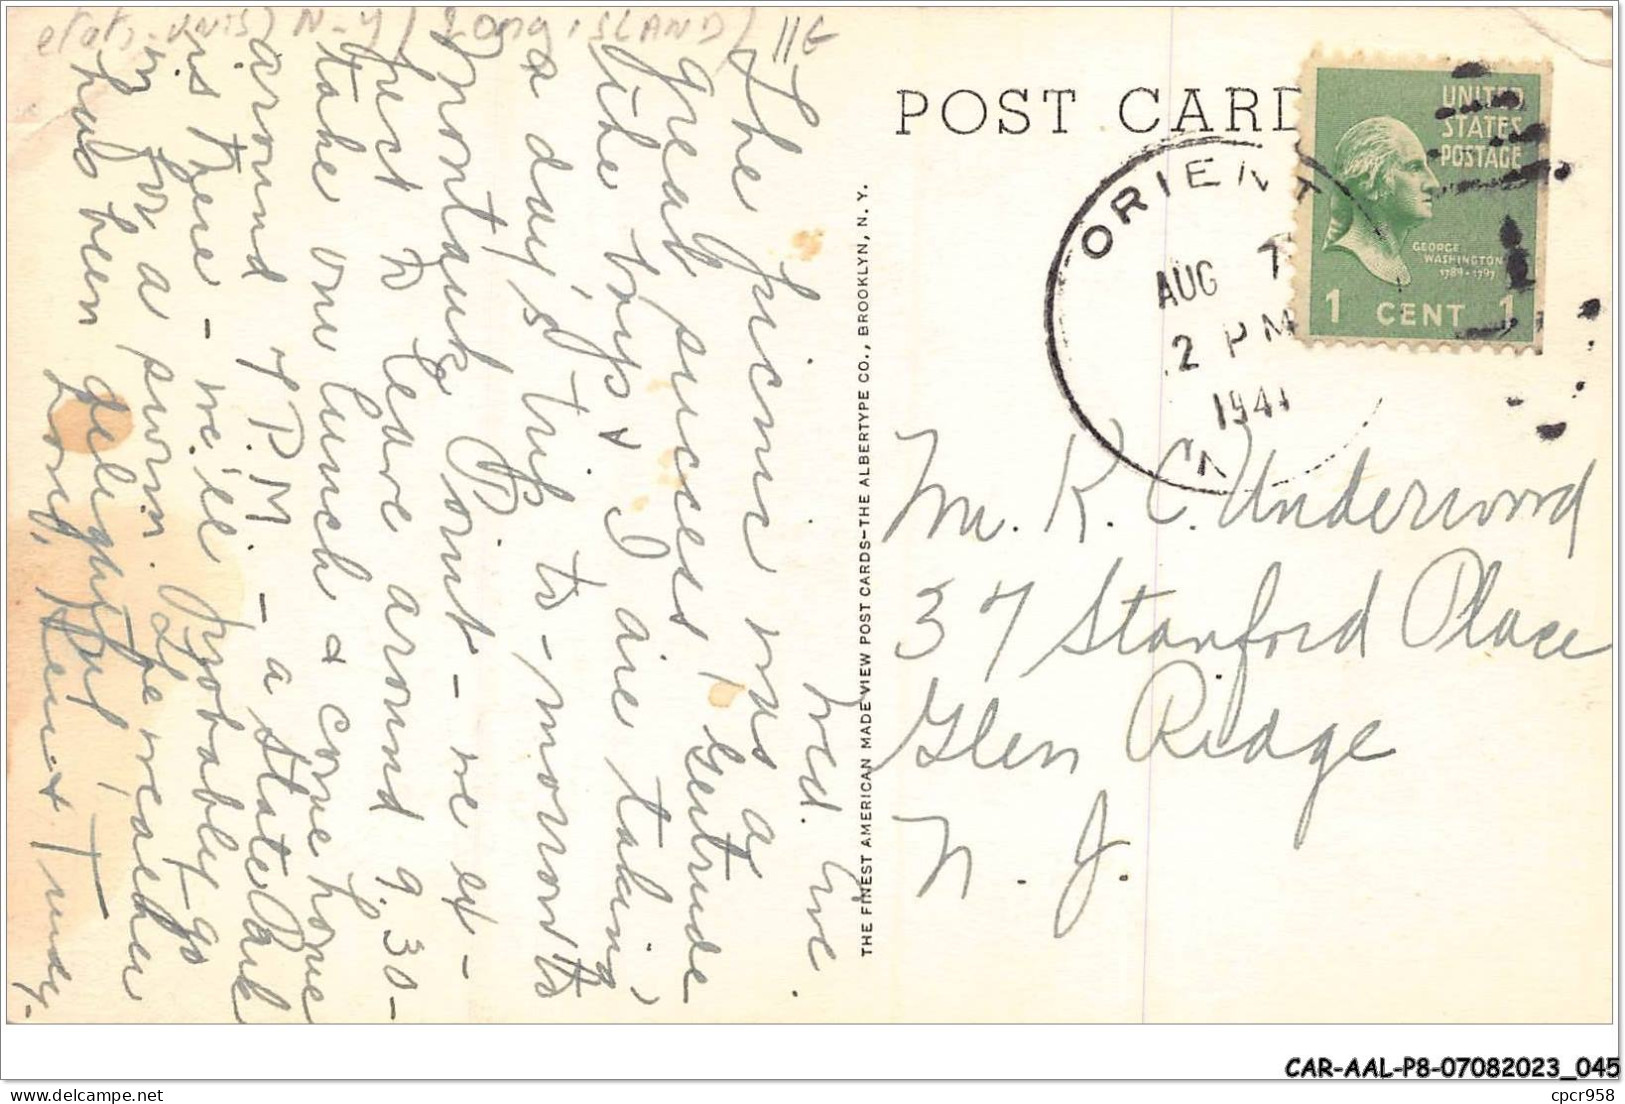 etats-unis) N-Y / Long ISLAND / 11E
POST CARD
UNITED
STATES
POSTAGE
GEORGE
WASHINGTON
1789-1797
1 CENT 1
ORIENT
AUG 7
2 PM
1941
N.Y.
Wed. Eve.
The picnic was a
great success, Gertrude
the boys & I are taking
a day's trip to-morrow to
Montauk Point - we ex-
pect to leave around 9.30 -
take our lunch & come home
around 7 P.M. - a State Park
is there - we'll probably go
in for a swim. The weather
has been delightful!
Love, Hein & Trudy.
THE FINEST AMERICAN MADE VIEW POST CARDS-THE ALBERTYPE CO., BROOKLYN, N. Y.
Mr. R. C. Underwood
37 Stanford Place
Glen Ridge
N. J.
CAR-AAL-P8-07082023_045
cpcr958